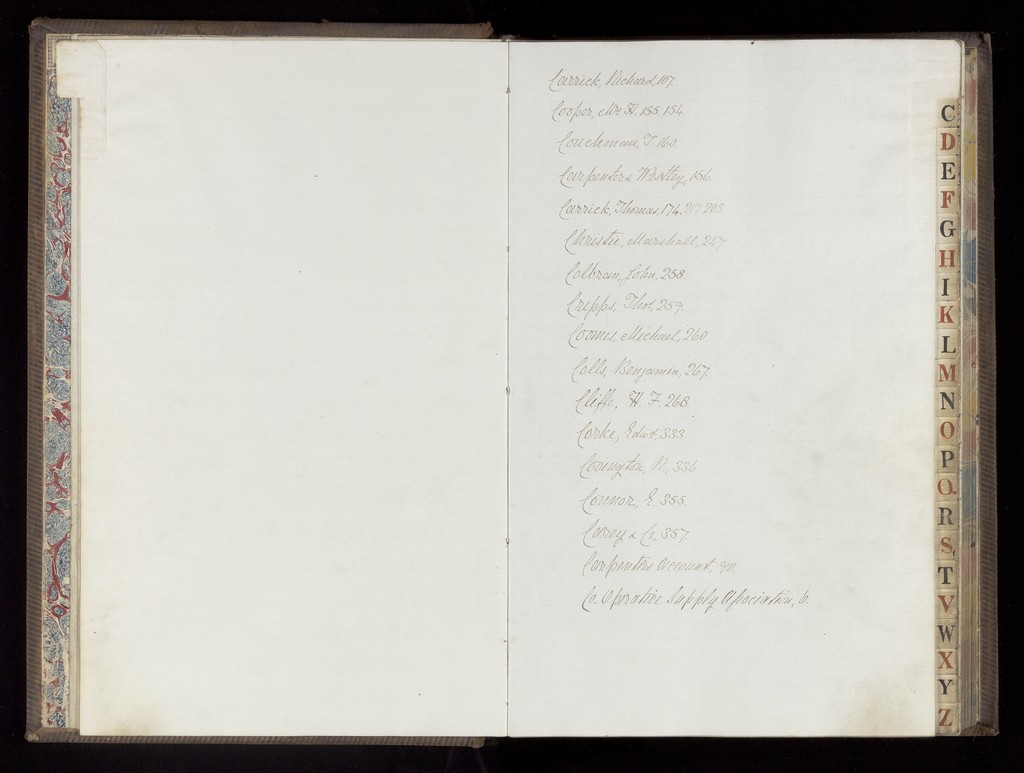 Carrick, Richard, 107.
Cooper, Mr H. 155, 154
Couchman, T. 160
Carpenter & Westley, 156.
Carrick, Thomas, 174, 207 208
Christie, Marshall, 247
Colbran, John, 258
Cripps, Thos, 259.
Coomes, Michael, 260
Calls, Benjamin, 267.
Cliffe, H. F. 268.
Corke, Edwd, 333
Covington, N. 336
Connor, E. 355.
Casey & Co, 357.
Carpenters Account, 90
Co. Operative Supply Association, 6.
C
D
E
F
G
H
I
K
L
M
N
O
P
Q.
R
S
T
V
W
X
Y
Z